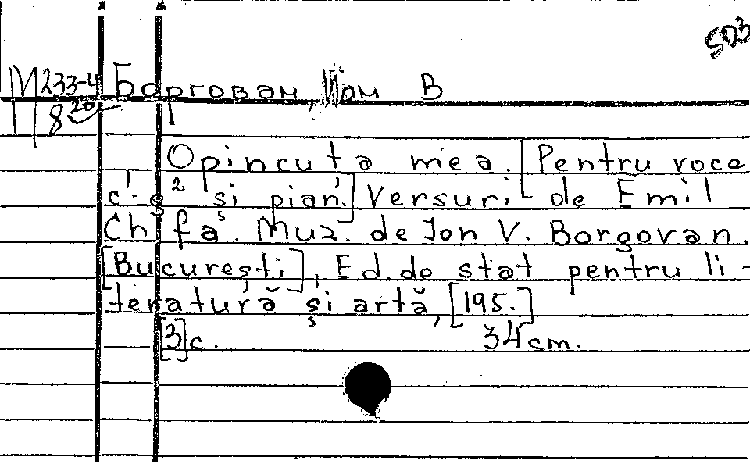 503
М 233-4 Боргован, Ион В
820
Opincuta mea. [Pentru voce
c'-e² şi pian.] Versuri de Emil
Chifa. Muz. de Ion V. Borgovan.
[Bucureşti], Ed. de stat pentru li-
teratură şi artă, [195.]
[3]c. 34 cm.